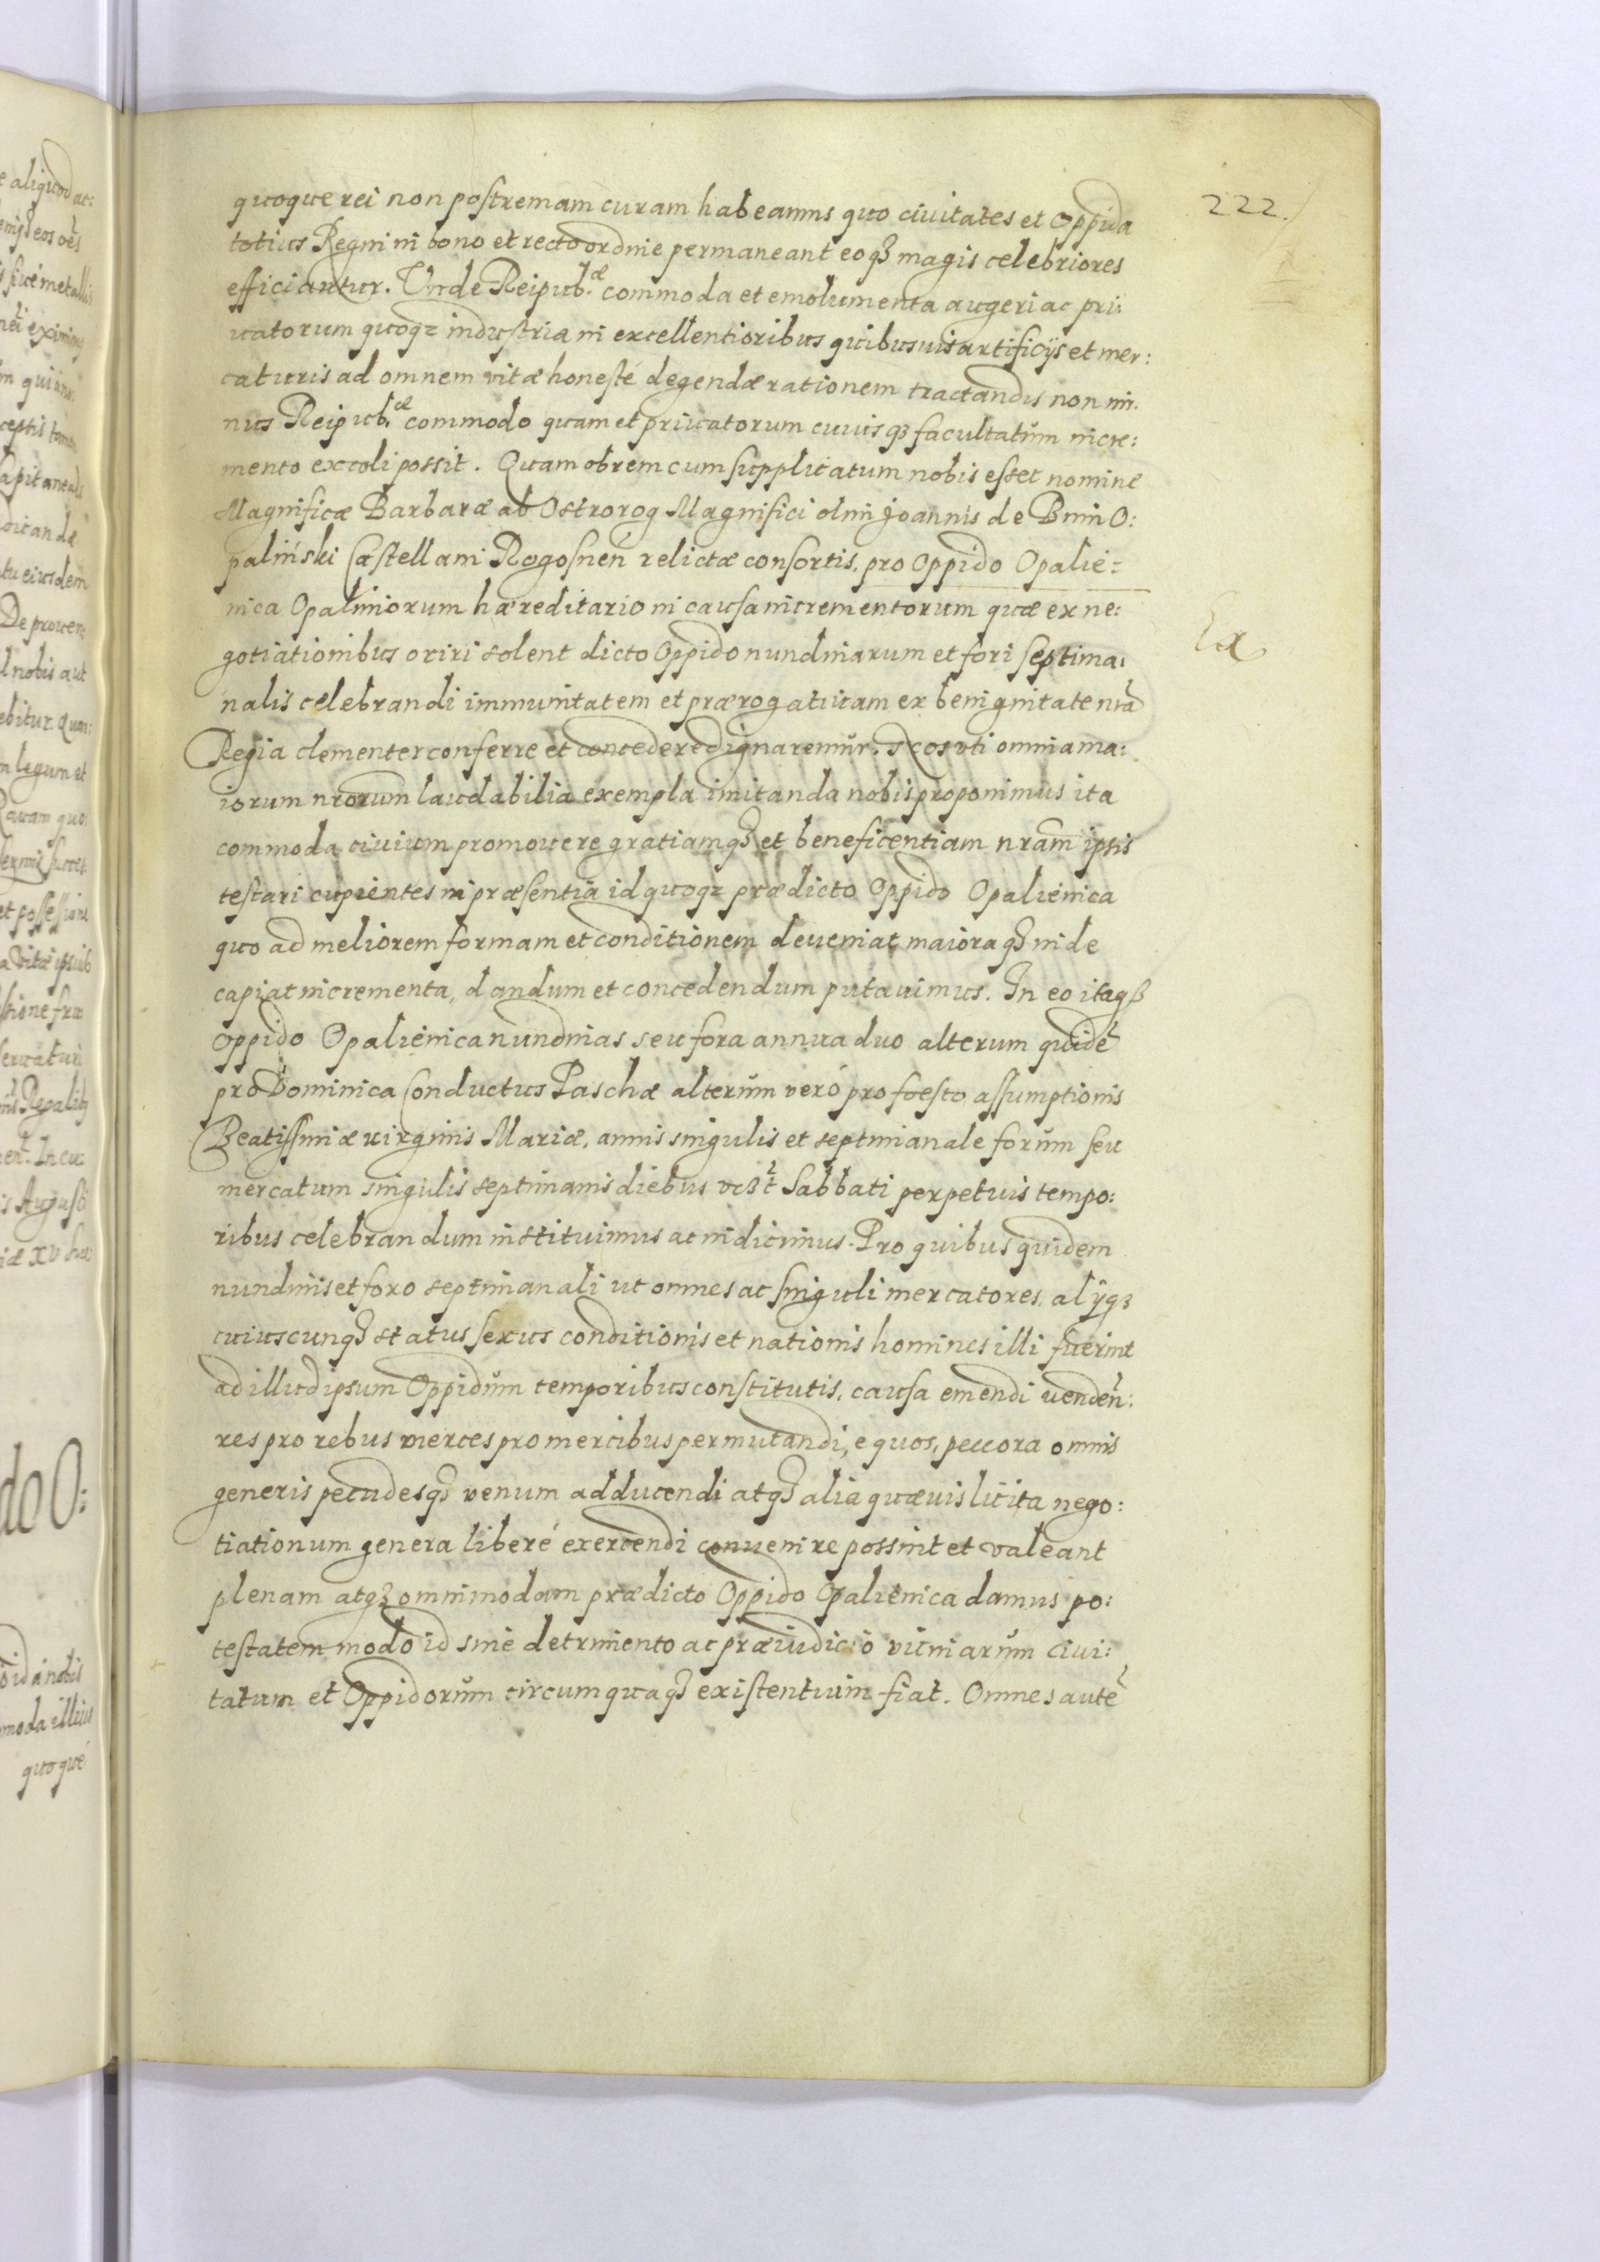 222.
quoque rei non postremam curam habeamus quo civitates et Oppida
totius Regni in bono et recto ordine permaneant eoq3 magis celebriores
efficiantur. Unde Reipub.ae commoda et emolumenta augeri ac pri:
vatorum quoq3 industria in excellentioribus quibusvis artificijs et mer:
caturis ad omnem vitæ honesté degendæ rationem tractandis non mi.
nus Reipub.ae commodo quam et privatorum cuiusq3 facultatum incre:
mento excoli possit. Quamobrem cum supplicatum nobis esset nomine
Magnificæ Barbaræ ab Ostrorog Magnifici olim Joannis de Bnin O:
paliński Castellani Rogosneń relictæ consortis, pro Oppido Opalie:
nica Opaliniorum hæreditario in causa incrementorum quæ ex ne:
gotiationibus oriri solent dicto Oppido nundinarum et fori septima:
nalis celebrandi immunitatem et prærogativam ex benignitate nrã
Regia clementer conferre et concedere dignaremur. Nos uti omnia ma:
iorum nrorum laudabilia exempla imitanda nobis proponimus ita
commoda civium promovere gratiamq3 et beneficentiam nram ipsis
testari cupientes in præsentia id quoq3 prædicto Oppido Opalienica
quo ad meliorem formam et conditionem deveniat maioraq3 inde
capiat incrementa, dandum et concedendum putavimus. In eo itaq3
Oppido Opalienica nundinas seu fora annua duo alterum quidẽ
pro Dominica Conductus Paschæ alterum veró pro foesto assumptionis
Beatissimæ virginis Mariæ, annis singulis et septimanale forum seu
mercatum singulis septimanis diebus vc3t Sabbati perpetuis tempo:
ribus celebrandum instituimus ac indicimus. Pro quibus quidem
nundinis et foro septimanali ut omnes ac singuli mercatores, alijq3
cuiuscunq3 status sexus conditionis et nationis homines illi fuerint
ad illud ipsum Oppidum temporibus constitutis, causa emendi venden:
res pro rebus merces pro mercibus permutandi, equos, peccora omnis
generis pecudesq3 venum adducendi atq3 alia quævis licita nego:
tiationum genera liberé exercendi convenire possint et valeant
plenam atq3 omnimodam prædicto Oppido Opalienica damus po:
testatem modo id sine detrimento ac præiudicio vicinarum civi:
tatum et Oppidorum circumquaq3 existentium fiat. Omnes autẽ